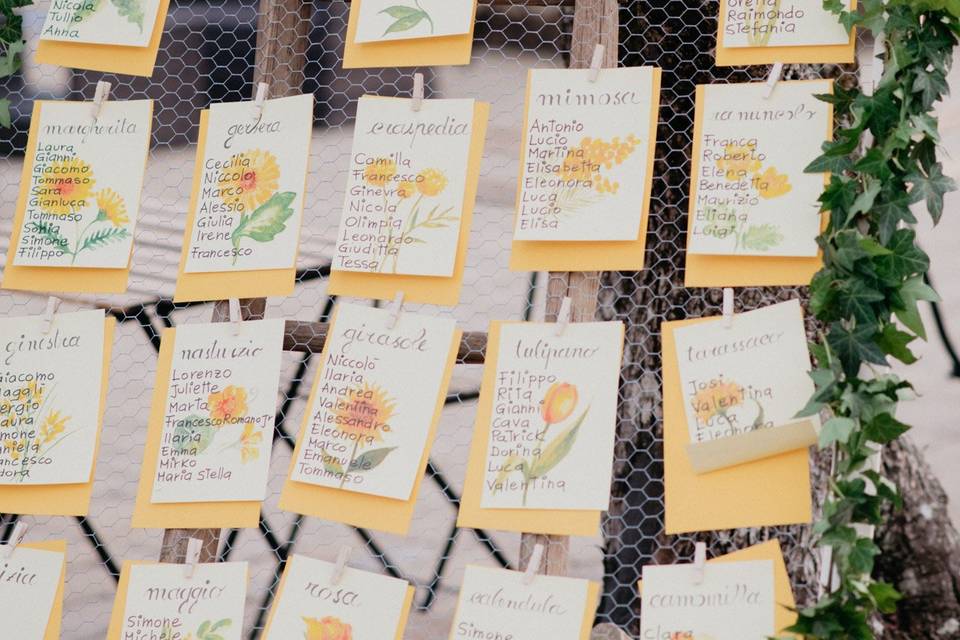 Nicola
Tullio
Anna
Raimondo
Stefania
margherita
Laura
Gianni
Giacomo
Tommaso
Sara
Gianluca
Tommaso
Sonia
Simone
Filippo
gerbera
Cecilia
Nicolò
Marco
Alessio
Giulia
Irene
Francesco
craspedia
Camilla
Francesco
Ginevra
Nicola
Olimpia
Leonardo
Giuditta
Tessa
mimosa
Antonio
Lucio
Martina
Elisabetta
Eleonora
Luca
Lucio
Elisa
ranuncolo
Franca
Roberto
Elena
Benedetta
Maurizio
Eliana
Luigi
ginestra
Giacomo
nasturzio
Lorenzo
Juliette
Marta
Francesco Romano Jr
Ilaria
Emma
Mirko
Maria Stella
girasole
Niccolò
Ilaria
Andrea
Valentina
Alessandro
Eleonora
Marco
Emanuele
Tommaso
tulipano
Filippo
Rita
Gianni
Cava
Patrick
Dorina
Luca
Valentina
tarassaco
Josi
Valentina
Luca
Eleonora
maggio
Simone
Michele
rosa
calendula
Simone
camomilla
Clara